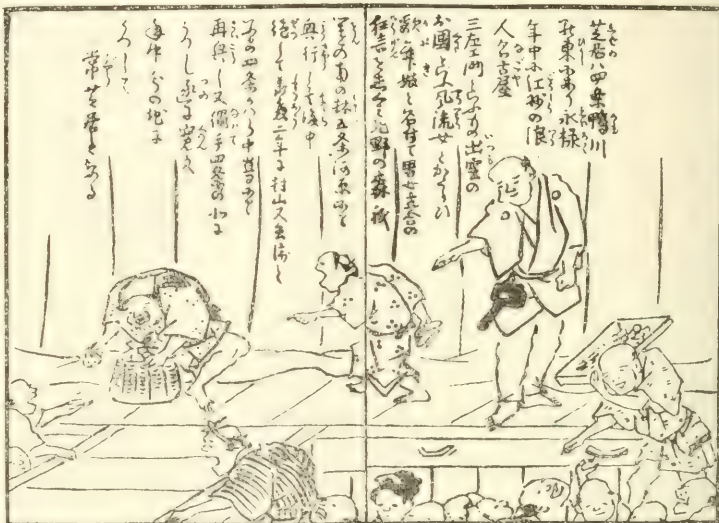 芝居ハ四条鴨川
の東にあり永禄
年中に江州の浪
人名古屋
三左衛門といふもの出雲の
お國といふ風流女とかたらひ
歌舞妓と名付て男女立合の
狂言を企て北野の森祇
園の南の林五条河原にて
興行して後中
絶して承應二年に村山又兵衛と
いふもの四条かハら中嶋にて
再興し又縄手四条の北に
うつし寛文
年中今の地に
うつして
常芝居となる